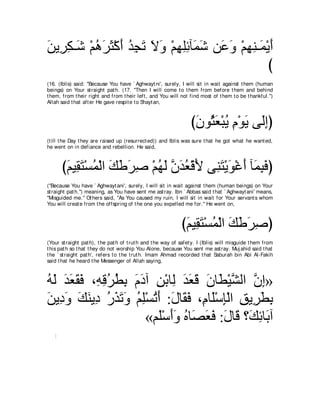 وَعَن شَمَآئِلِهِمْ وَلاَ تَجِدُ أَكْثَرَهُمْ شَـكِرِينَ أَيْمَـنِهِمْ
)
(16. (Iblis) said: "Because You have `Aghwaytni', surely, I will sit in wait against them (human beings) on Your straight path. (17. "Then I will come to them from before them and behind them, from their right and from their left, and You will not find most of them to be thankful.") Allah said that after He gave respite to Shaytan,
(إِلَى يَوْمِ يُبْعَثُونَ)
(till the Day they are raised up (resurrected)) and Iblis was sure that he got what he wanted, he went on in defiance and rebellion. He said,
(فَبِمَآ أَغْوَيْتَنِى لأَقْعُدَنَّ لَهُمْ صِرَطَكَ الْمُسْتَقِيمَ)
("Because You have `Aghwaytani', surely, I will sit in wait against them (human beings) on Your straight path.") meaning, as You have sent me astray. Ibn `Abbas said that `Aghwaytani' means, "Misguided me." Others said, "As You caused my ruin, I will sit in wait for Your servants whom You will create from the offspring of the one you expelled me for." He went on,
(صِرَطَكَ الْمُسْتَقِيمَ)
(Your straight path), the path of truth and the way of safety. I (Iblis) will misguide them from this path so that they do not worship You Alone, because You sent me astray. Mujahid said that the `straight path', refers to the truth. Imam Ahmad recorded that Saburah bin Abi Al-Fakih said that he heard the Messenger of Allah saying,
«إِنَّ الشَّيْطَانَ قَعَدَ لِابْنِ آدَمَ بِطُرُقِهِ، فَقَعَدَ لَهُ
بِطَرِيقِ الْإِسْلَامِ، فَقَالَ: أَتُسْلِمُ وَتَذَرُ دِينَكَ وَدِينَ
آبَائِكَ؟ قَالَ: فَعَصَاهُ وَأَسْلَم»